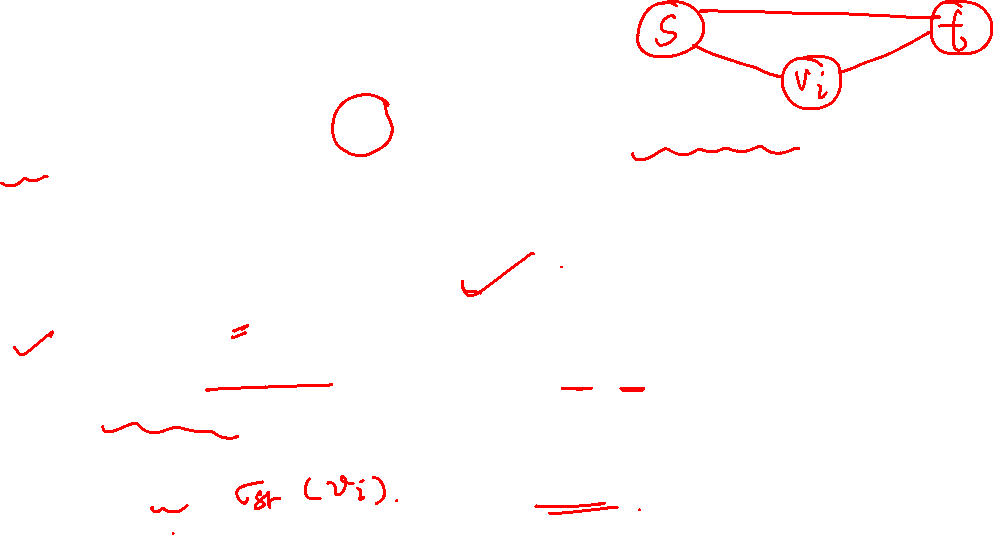 s t
v_i
σ_st (v_i).